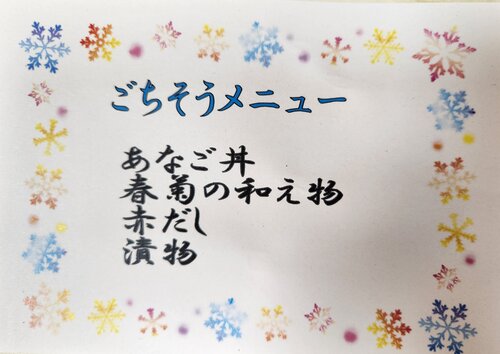 ごちそうメニュー
あなご丼
春菊の和え物
赤だし
漬物